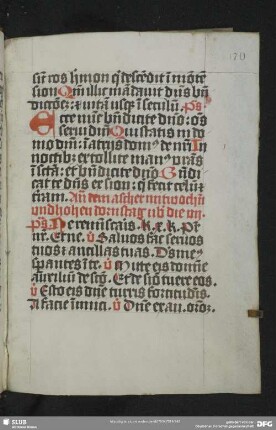 sicut ros hermon qui descendit in monte
sion Quoniam illic mandauit dominus bene
dictionem: et vitam usque in seculum. Ps
Ecce nunc benedicite dominum: omnes
serui domini Qui statis in do
mo domini: in atrijs domus dei nostri In
noctibus extollite manus vestras
in sancta: et benedicite dominum Benedi
cat te dominus ex sion: qui fecit celum et
terram. An dem ascher mitwochen
vnd hohen dornstag vber die vij
ps Ne reminiscaris. k. x. k. Pater
noster. Et ne. v Saluos fac seruos
tuos et ancillas tuas. Deus meus
sperantes in te. v Mitte eis domine
auxilium de sancto. Et de sion tuere eos.
v Esto eis domine turris fortitudinis.
A facie inimici. v Domine exaudi oracionem.
170
SLUB